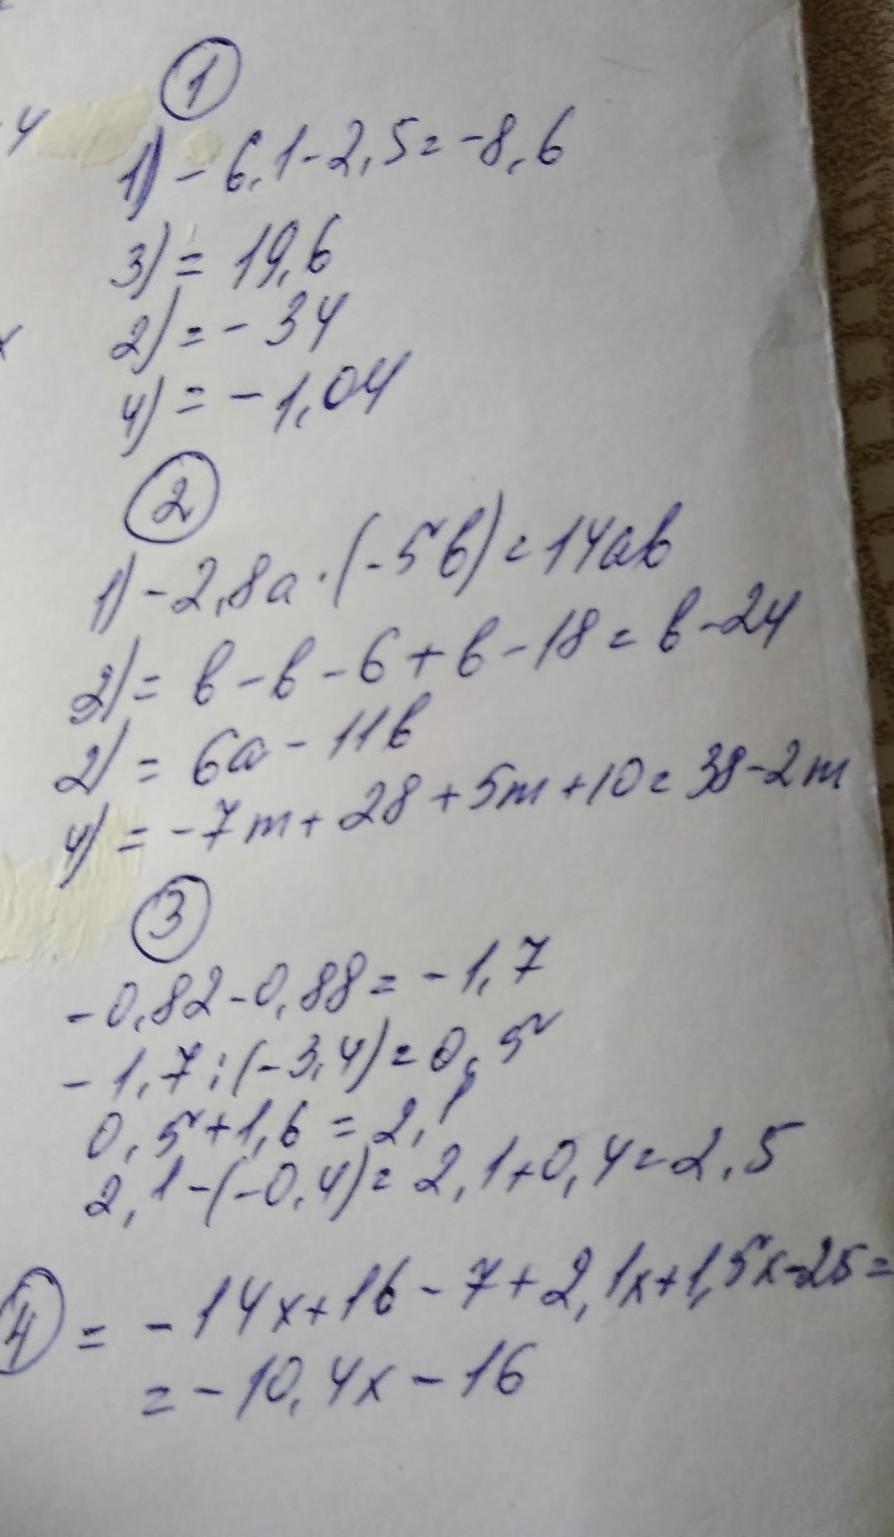 1
1) - 6,1 - 2,5 = -8,6
3) = 19,6
2) = - 34
4) = - 1,04
2
1) - 2,8a · (-5b) = 14ab
3) = b - b - 6 + b - 18 = b - 24
2) = 6a - 11b
4) = - 7m + 28 + 5m + 10 = 38 - 2m
3
- 0,82 - 0,88 = - 1,7
- 1,7 : (-3,4) = 0,5
0,5 + 1,6 = 2,1
2,1 - (-0,4) = 2,1 + 0,4 = 2,5
4 = - 14x + 16 - 7 + 2,1x + 1,5x - 25 =
= - 10,4x - 16